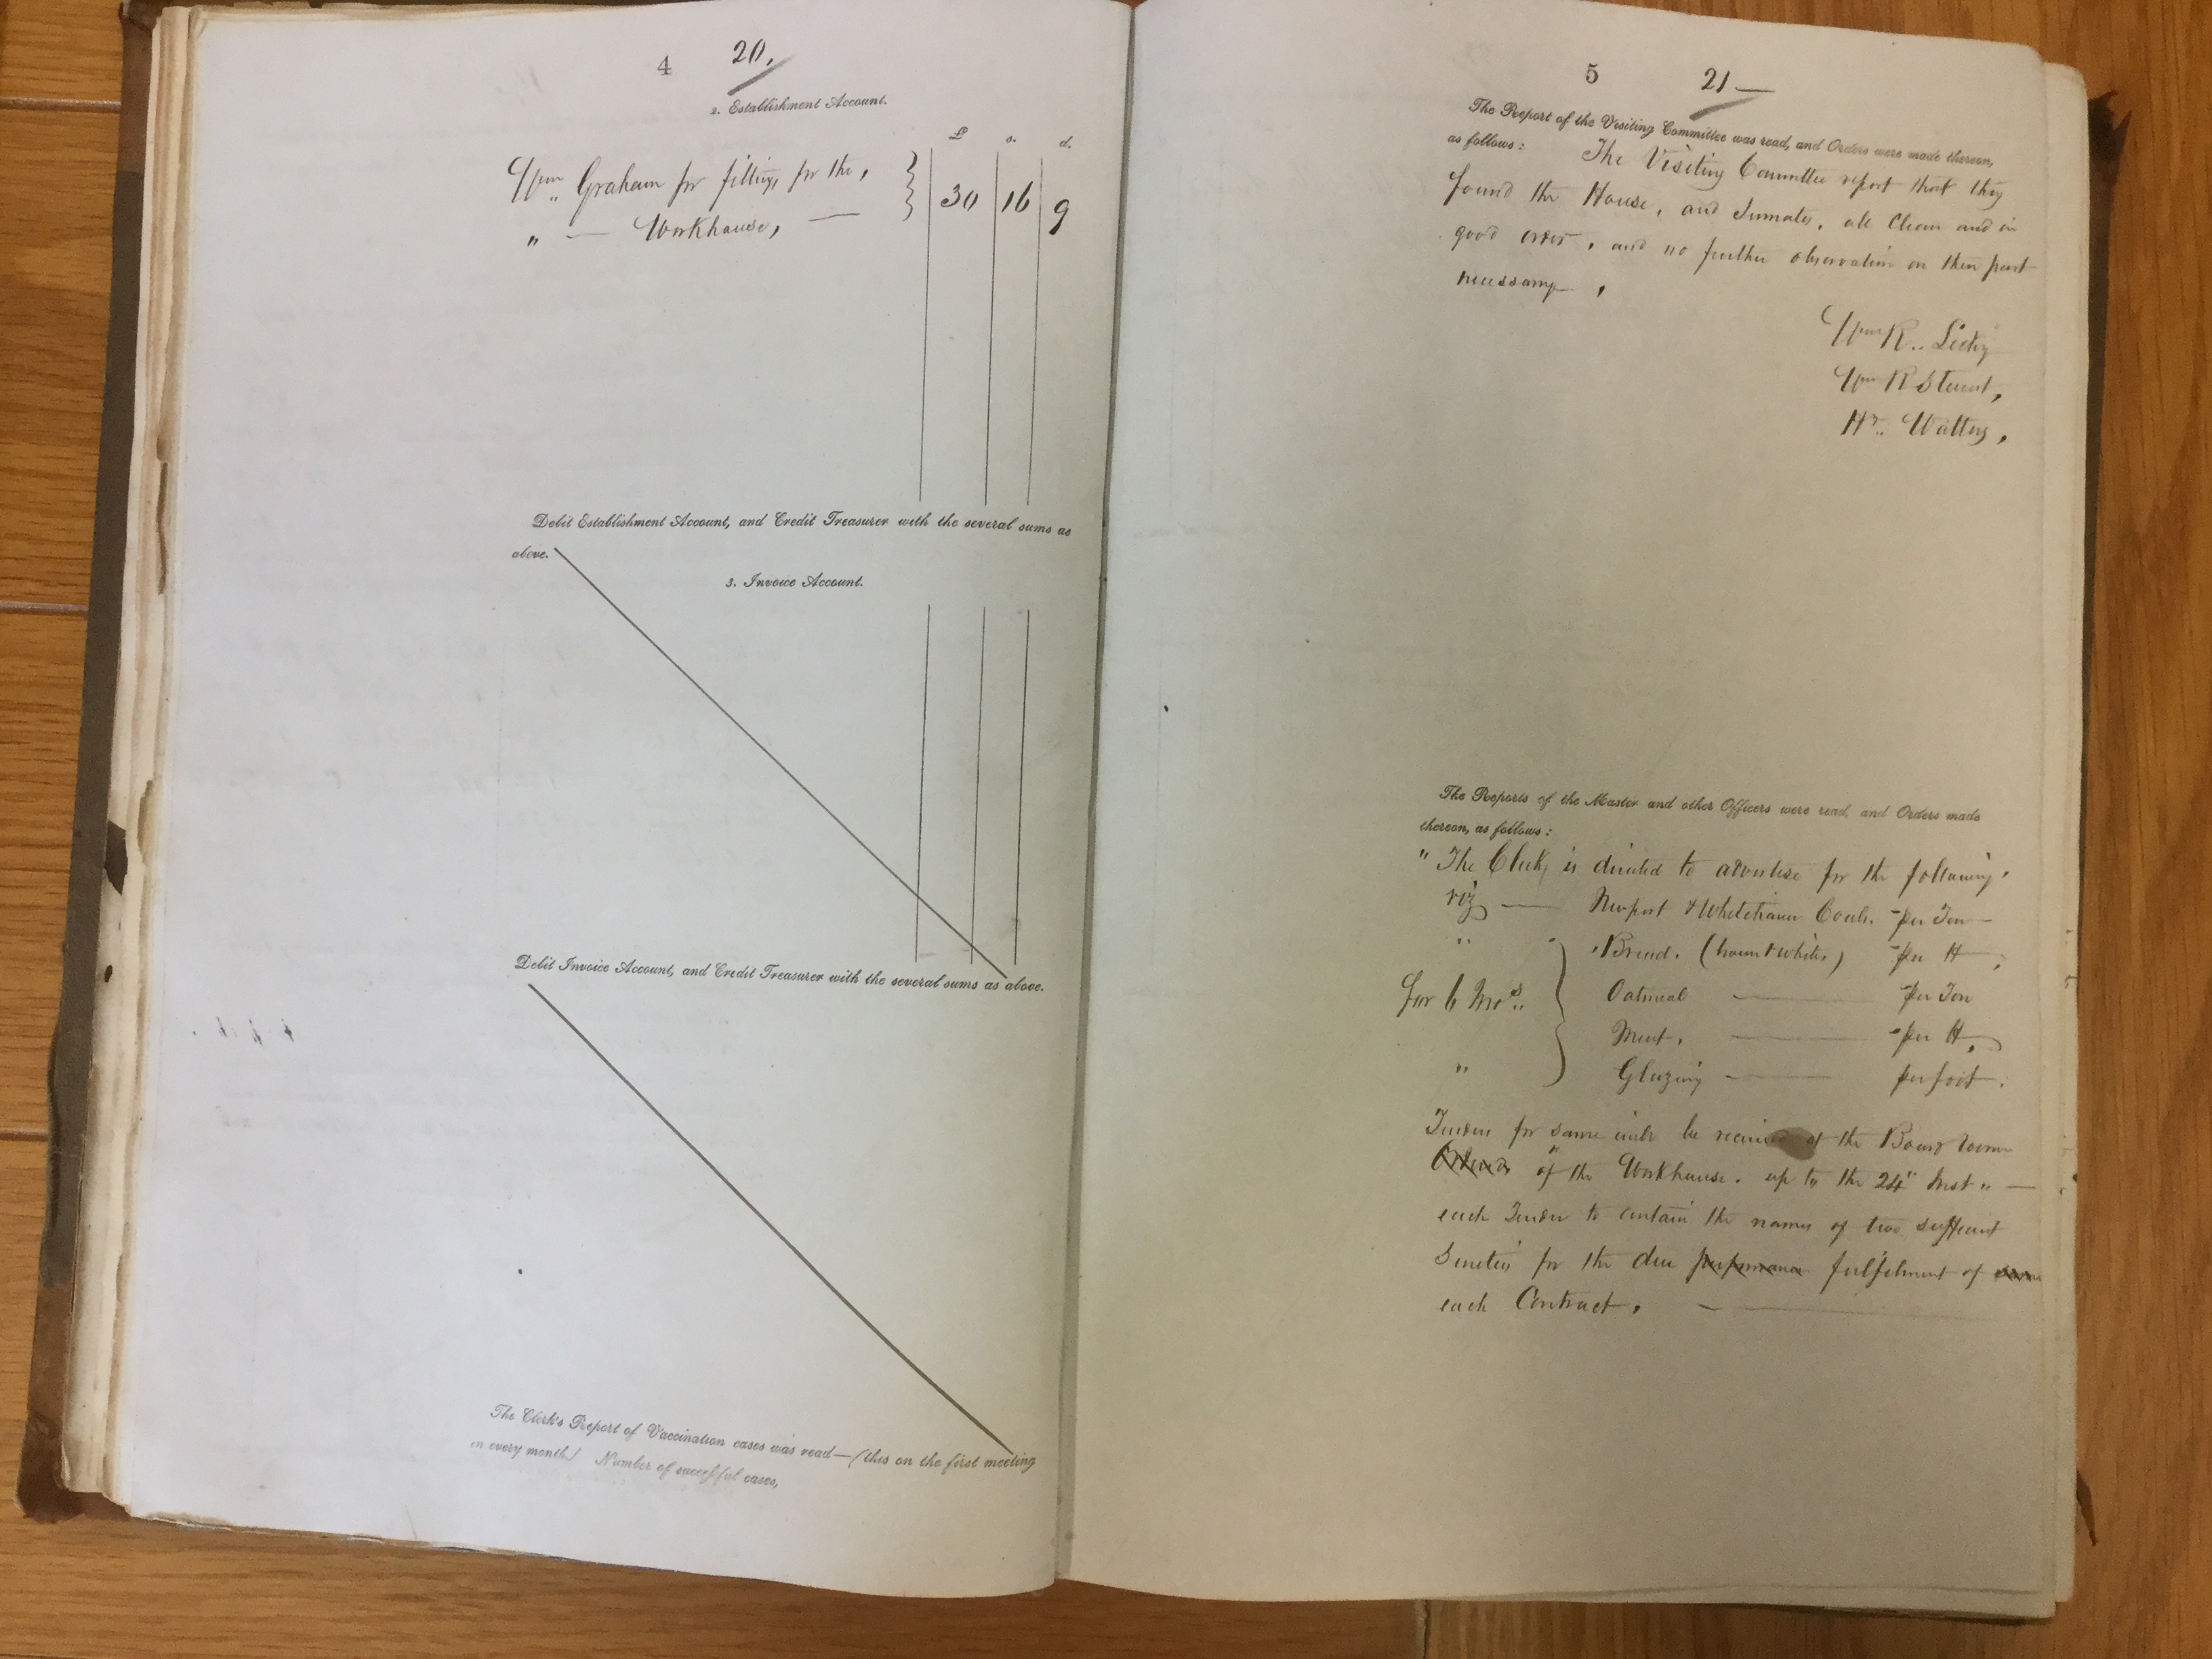 4 20.
2. Establishment Account.
£ s. d.
Wm Graham for fittings for the,
" — Workhouse, — 30 16 9
Debit Establishment Account, and Credit Treasurer with the several sums as
above.
3. Invoice Account.
Debit Invoice Account, and Credit Treasurer with the several sums as above.
The Clerk's Report of Vaccination cases was read—(this on the first meeting
in every month.) Number of successful cases,
5 21—
The Report of the Visiting Committee was read, and Orders were made thereon,
as follows: The Visiting Committee report that they
found the House, and Inmates, all Clean and in
good order, and no further observation on their part
necessary,
Wm R.. Lecky
Wm R Stewart,
Hy.. Watters,
The Reports of the Master and other Officers were read, and Orders made
thereon, as follows:
" The Clerk, is directed to advertise for the following,
viz — Newport & Whitehaven Coals. per Ton —
" Bread. (brown & white,) per lb,
for 6 Mos.. Oatmeal — per Ton
Meat, — per lb,
" Glazing — per foot.
Tenders for same will be received at the Board room
of the Workhouse. up to the 24" Inst " —
each Tender to contain the names of two sufficient
Sureties for the due performance fulfilment of
each Contract, —